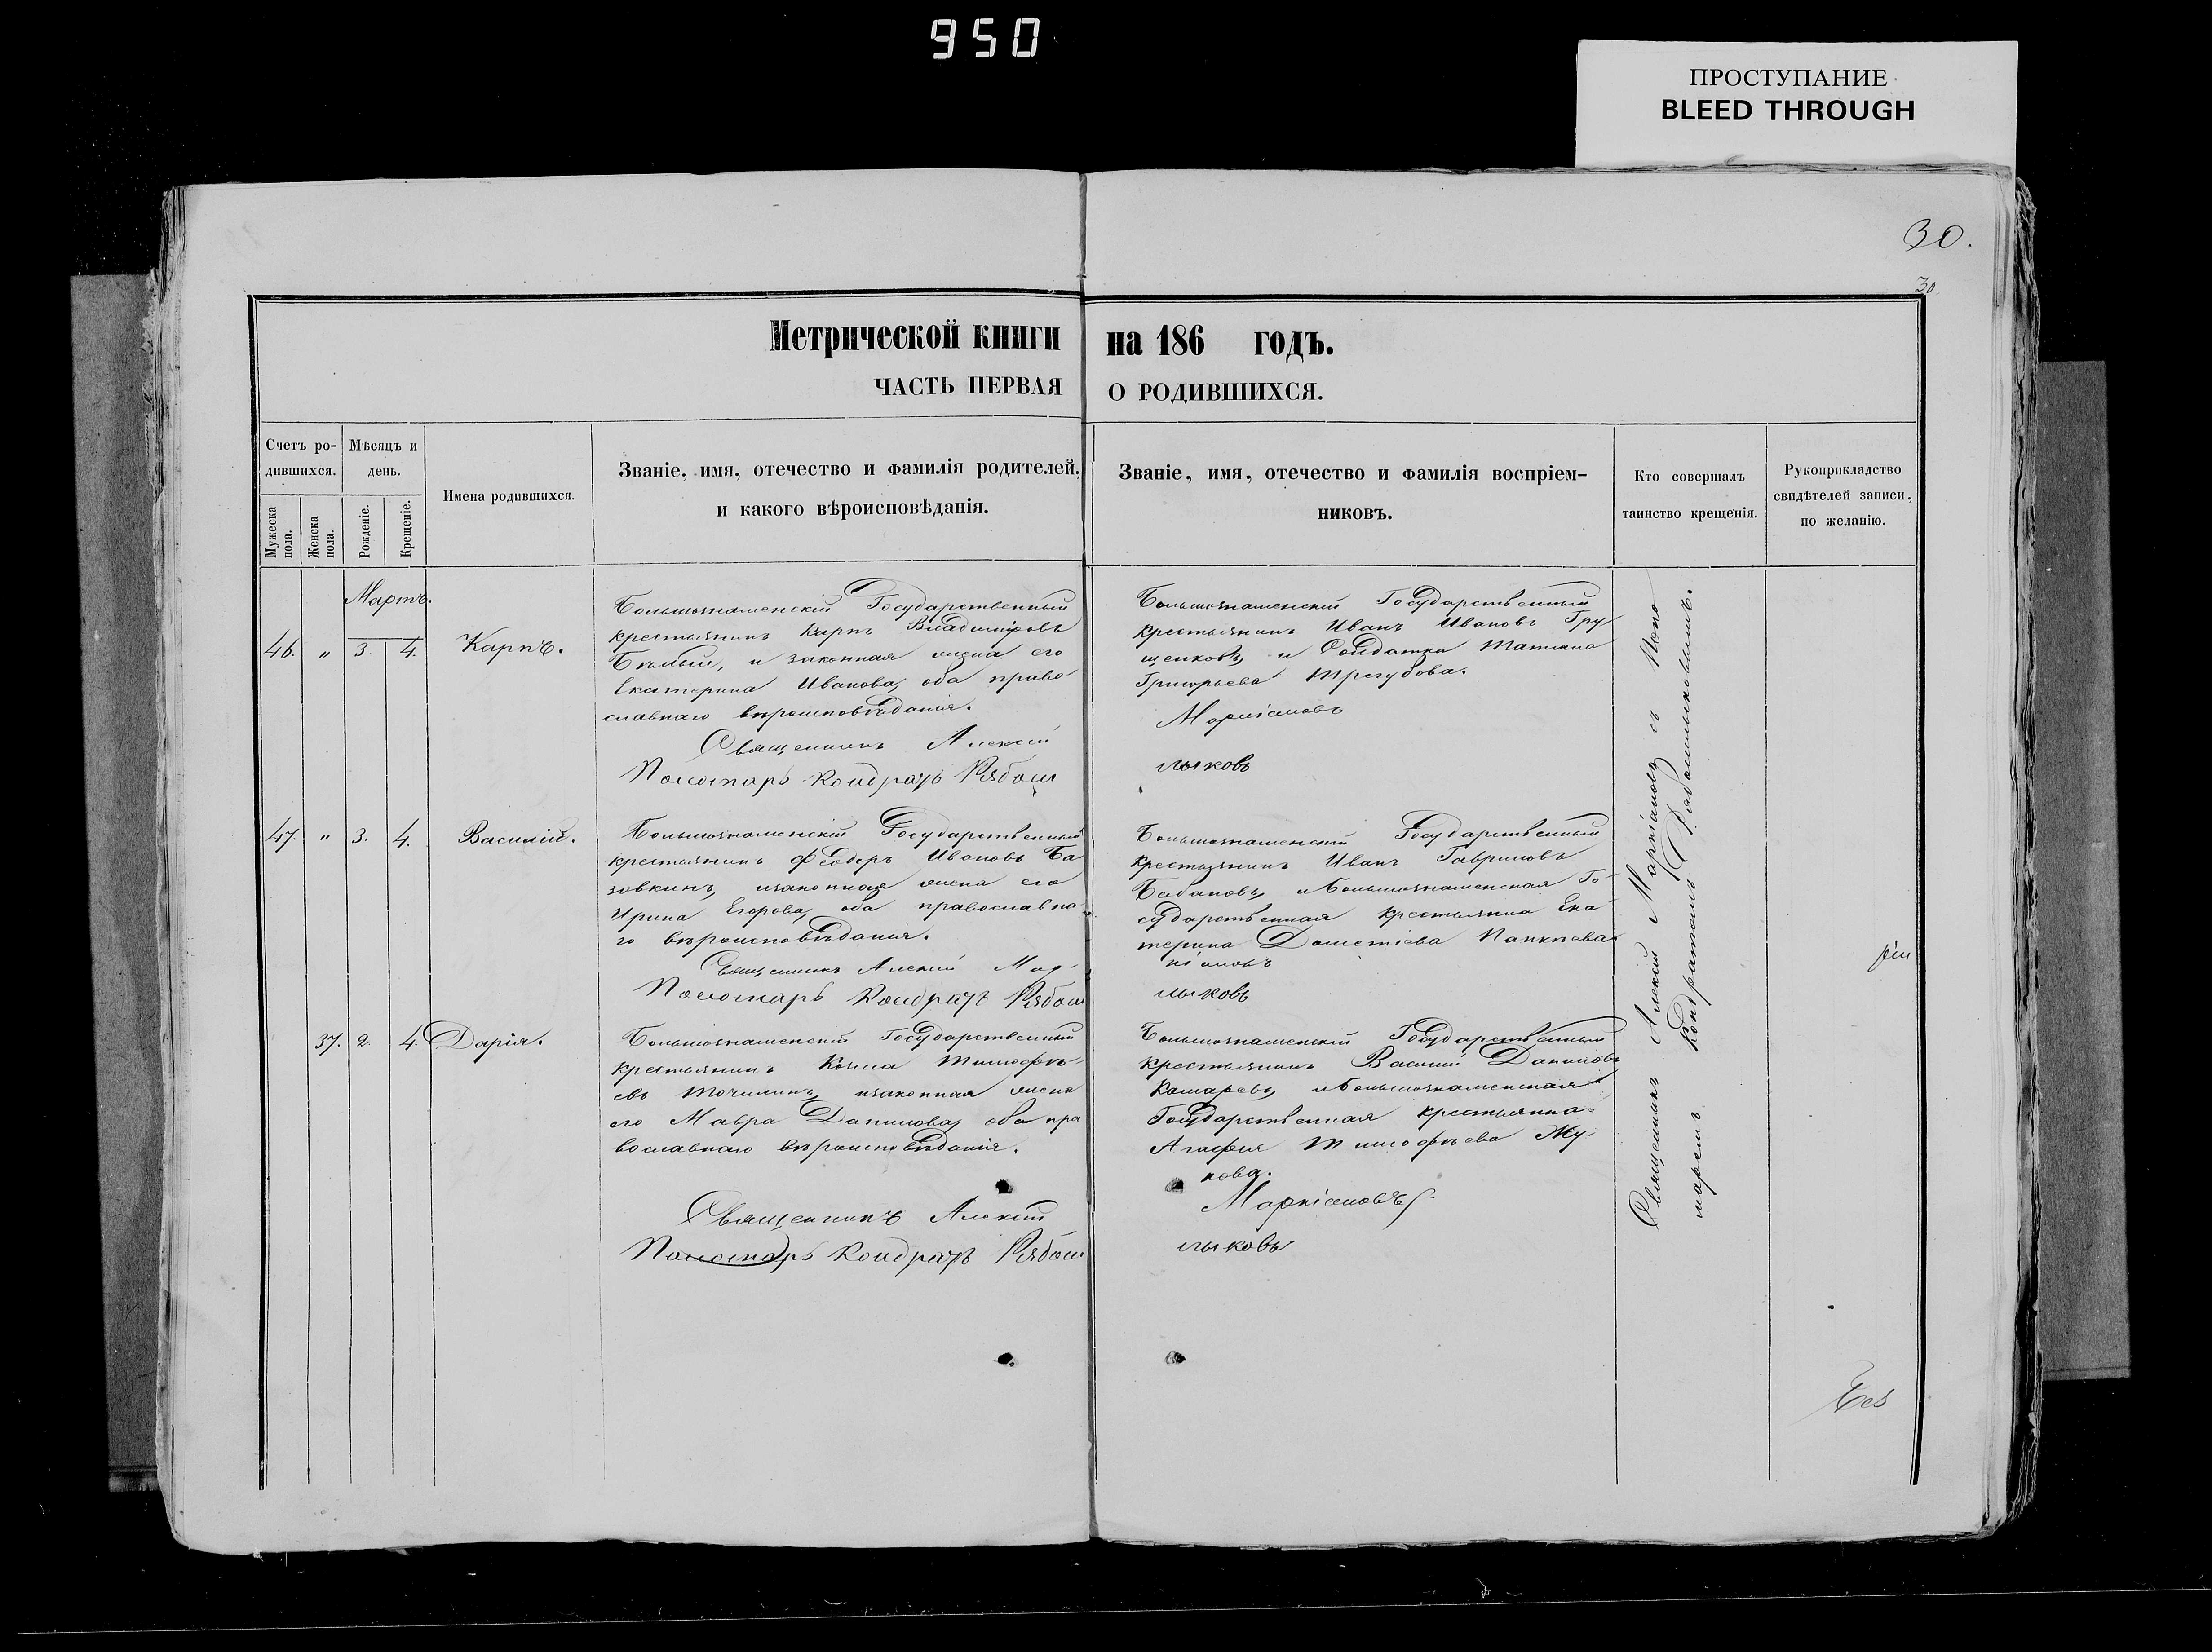 950
ПРОСТУПАНИЕ
BLEED THROUGH
30.
30
Метрической книги на 186 годъ.
ЧАСТЬ ПЕРВАЯ О РОДИВШИХСЯ.
Счетъ ро-
дившихся.
Мѣсяцъ и
день.
Мужеска
пола.
Женска
пола.
Рожденіе.
Крещеніе.
Имена родившихся.
Званіе, имя, отечество и фамилія родителей,
и какого вѣроисповѣданія.
Званіе, имя, отечество и фамилія воспріем-
никовъ.
Кто совершалъ
таинство крещенія.
Рукоприкладство
свидѣтелей записи,
по желанію.
Мартъ.
46. " 3. 4. Карпъ.
Большознаменскій Государственный
крестьянинъ Карпъ Владиміровъ
Бѣлый, и законная жена его
Екатерина Иванова, оба право-
славнаго вѣроисповѣданія.
Священникъ Алексій
Пономарь Кондратъ Рябош
Большознаменскій Государственный
крестьянинъ Иванъ Ивановъ Гру-
щенковъ, и Солдатка Татіана
Григорьева Трегубова.
Маркіановъ
лыковъ
47. " 3. 4. Василій.
Большознаменскій Государственный
крестьянинъ Феодоръ Ивановъ Ба
зовкинъ, изаконная жена его
Ирина Егорова, оба православна-
го вѣроисповѣданія.
Священникъ Алексій Мар-
Пономарь Кондратъ Рябош
Большознаменскій Государственный
крестьянинъ Иванъ Гавриловъ
Бабановъ, и Большознаменская Го-
сударственная крестьянка Ека-
терина Дометіева
кіановъ
лыковъ
37. 2. 4. Дарія.
Большознаменскій Государственный
крестьянинъ Козма Тимофѣ-
евъ Точилинъ, изаконная жена
его Мавра Данилова, оба пра
вославнаго вѣроисповѣданія.
Священникъ Алексій
Пономарь Кондратъ Рябош
Большознаменскій Государственный
крестьянинъ Василій Даниловъ
Комаревъ, и Большознаменская
Государственная крестьянка
Агафія Тимофѣева Жу-
кова.
Маркіановъ
лыковъ
Священникъ Алексій Маркіановъ съ Поно
маремъ Кондратомъ Рябошлыковымъ.